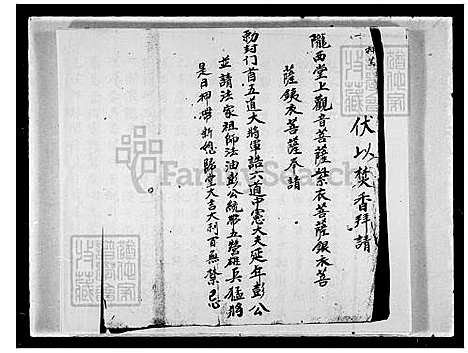 伏以焚香拜請
隴西堂上觀音菩薩紫衣菩薩銀衣菩
薩銕衣菩薩奉請
勅封門首五道大將軍誥六道中憲大夫延年彭公
並請法家祖師法油彭公統帶五營雄兵猛將
是日神煞新魂歸堂大吉大利百無禁忌
FamilySearch